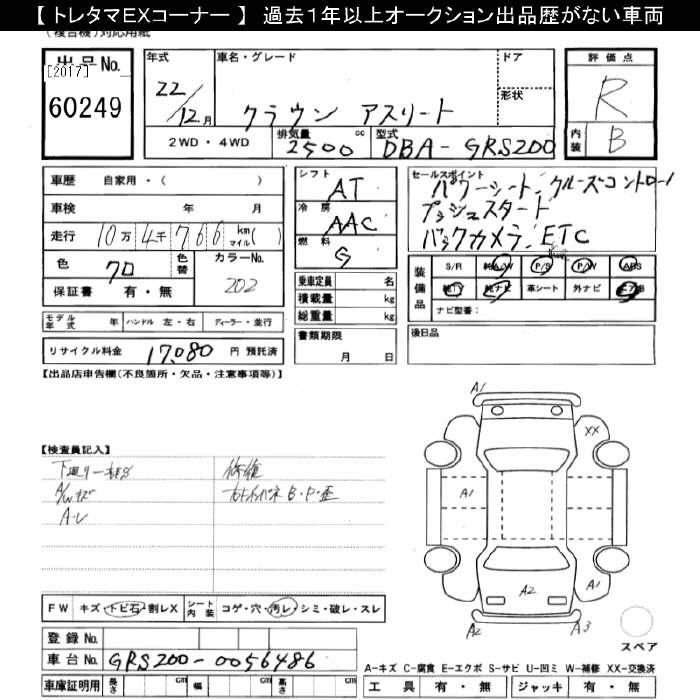 【 トレタマEXコーナー 】 過去1年以上オークション出品歴がない車両
(複合機)対応用紙
出品No.
[2017]
60249
年式
22/12月
車名・グレード
クラウン アスリート
ドア
形状
評価点
R
内装
B
2WD・4WD
排気量
2500
cc
型式
DBA-GRS200
車歴 自家用・( )
車検 年 月
走行 10万4千766 km マイル( )
色 クロ
色替
カラーNo.
202
保証書 有・無
モデル年式 年
ハンドル 左・右
ディーラー・並行
リサイクル料金 17,080 円 預託済
シフト AT
冷房 AAC
燃料 G
乗車定員 名
積載量 kg
総重量 kg
書類期限
月 日
セールスポイント
パワーシート、クルーズコントロール
プッシュスタート
バックカメラ、ETC
装備品
S/R 純A/W P/S P/W ABS
純TV 純ナビ 革シート 外ナビ エアB
ナビ型番:
後日品
【出品店申告欄(不良箇所・欠品・注意事項等)】
【検査員記入】
下廻り一部サ
A/Wキズ
修復
B・P・歪
FW キズ・トビ石・割レX
シート内装 コゲ・穴・汚レ・シミ・破レ・スレ
登録No.
車台No. GRS200-0056486
車庫証明用 長さ cm 幅 cm 高さ cm
A1
XX
A1
A1
A2
A2
A3
スペア
A-キズ C-腐食 E-エクボ S-サビ U-凹ミ W-補修 XX-交換済
工具 有・無 ジャッキ 有・無